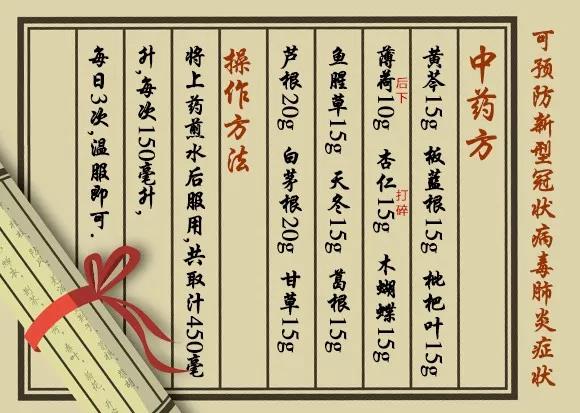 可预防新型冠状病毒肺炎症状
中药方
黄芩15g 板蓝根15g 枇杷叶15g
薄荷10g后下 杏仁15g打碎 木蝴蝶15g
鱼腥草15g 天冬15g 葛根15g
芦根20g 白茅根20g 甘草15g
操作方法
将上药煎水后服用,共取汁450毫
升,每次150毫升,
每日3次,温服即可.